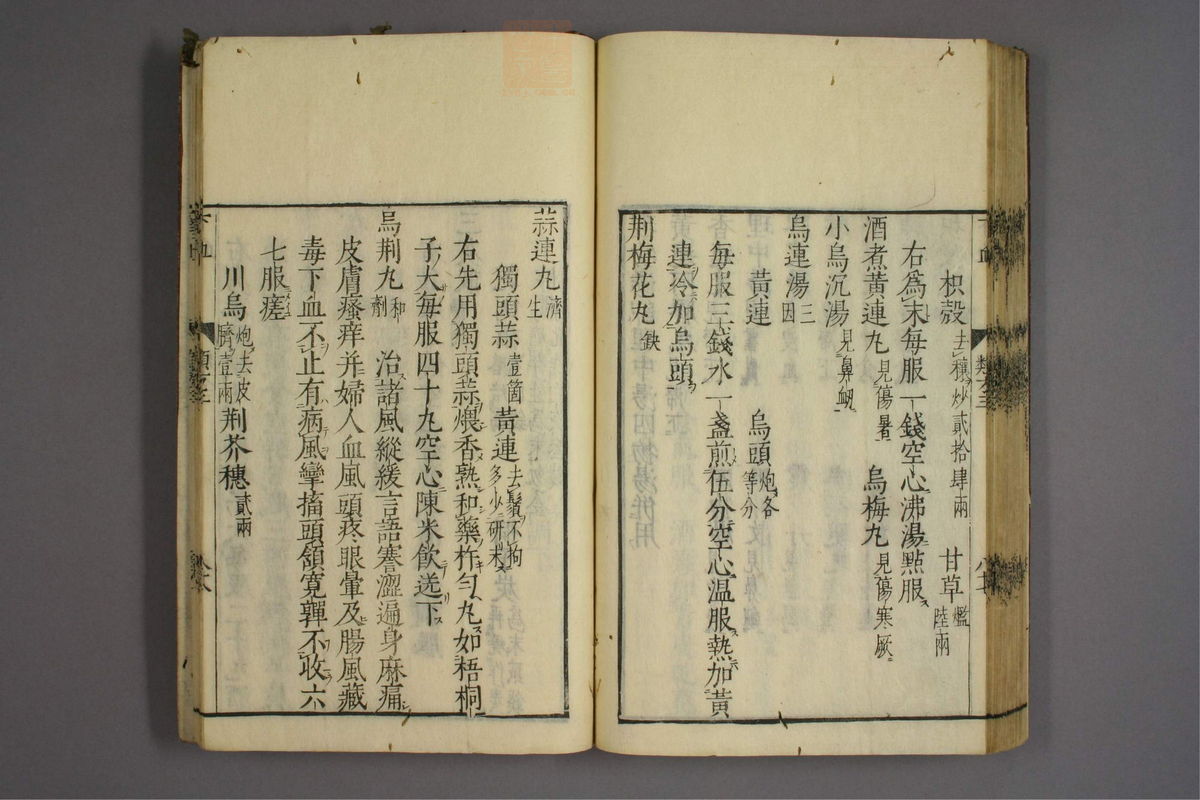 枳殼去穰炒貳拾肆兩　甘草爁陸兩
右爲末每服一錢空心沸湯點服
酒煮黃連丸見傷暑　烏梅丸見傷寒厥
小烏沉湯見鼻衂
烏連湯三因
黃連　烏頭炮各等分
每服三錢水一盞煎伍分空心温服熱加黃
連冷加烏頭
荆梅花丸缺
蒜連丸濟生
獨頭蒜壹箇黃連去鬚不拘多少研末
右先用獨頭蒜煨香熟和藥杵勻丸如梧桐
子大每服四十九空心陳米飲送下
烏荆丸和劑　治諸風縱緩言語謇澀遍身麻痛
皮膚瘙痒并婦人血風頭疼眼暈及腸風藏
毒下血不止有病風攣搐頭頷寛嚲不收六
七服瘥
川烏炮去皮臍壹兩荆芥穗貳兩